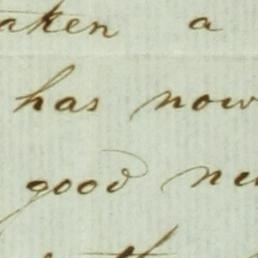 aken a
has now
good